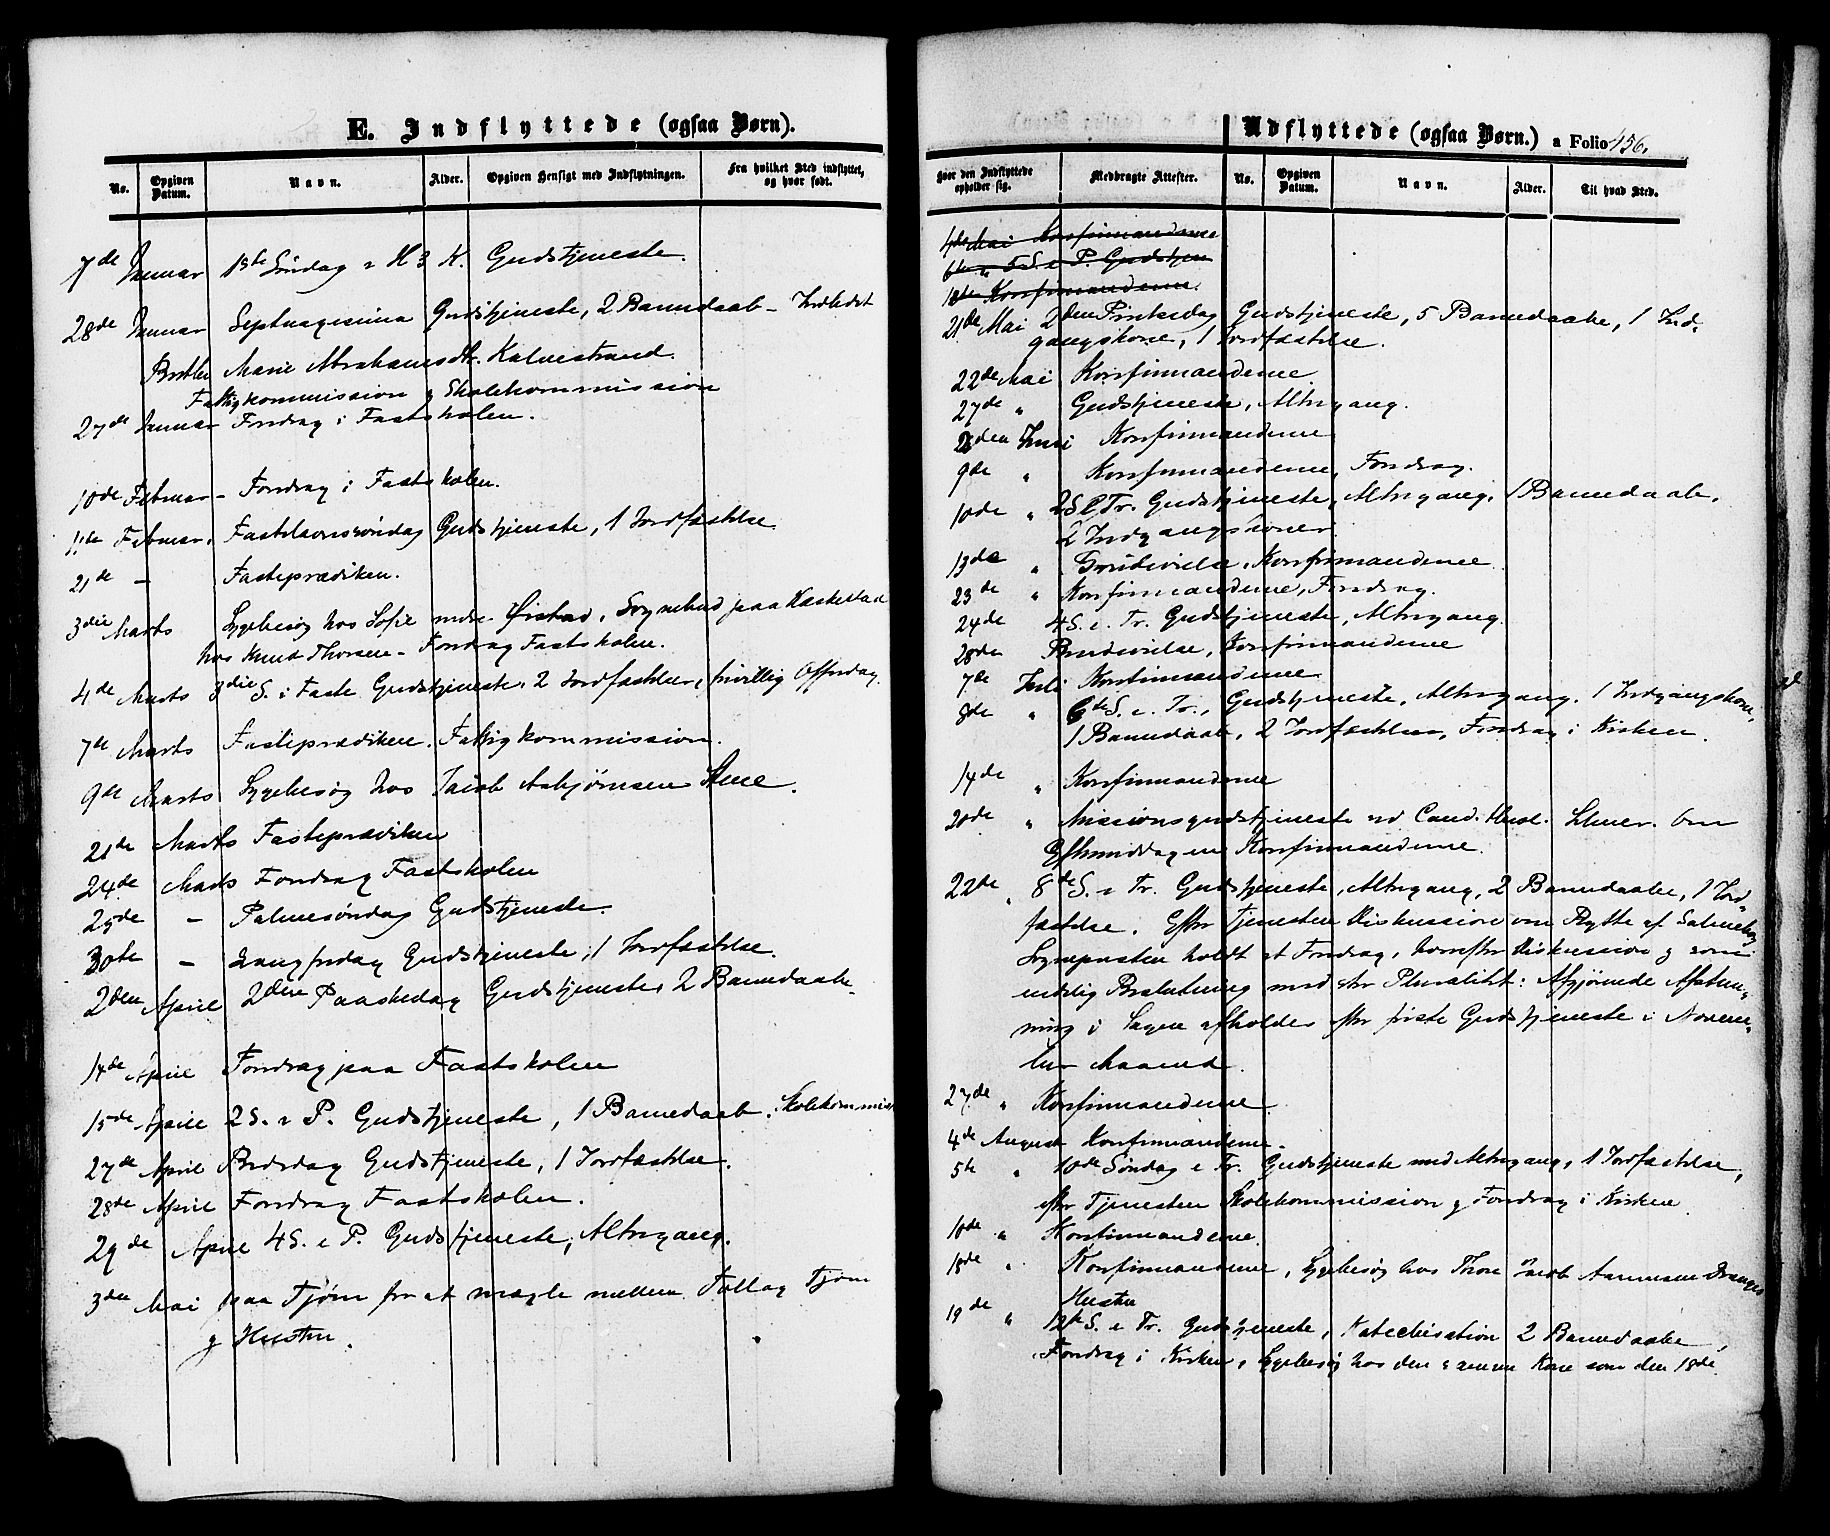 E. Indflyttede (ogsaa Børn).
No.
Opgiven Datum.
Navn.
Alder.
Opgiven Hensigt med Indflytningen.
Fra hvilket Sted indflyttet, og hvor født.
7de Januar 1ste Søndag e H 3 K. Gudstjeneste.
28de Januar Septuagesima Gudstjeneste, 2 Barnedaab -
Marie Abrahamsdtr. Kalvestrand.
Fattigkommission og Skolekommission
27de Januar Foredrag i Fastskolen.
10de Februar - Foredrag i Fastskolen.
11te Februar. Fastelavnssøndag Gudstjeneste, 1 Jordfæstelse
21de - Fasteprædiken.
3die Marts Sygebesøg hos Sofie nedre Ørstad, Sognebud paa
hos Knud Thorsen - Foredrag Fastskolen.
4de Marts 3die S. i Faste Gudstjeneste, 2 Jordfæstelser, frivillig Offerdag.
7de Marts Fasteprædiken. Fattigkommission.
9de Marts Sygebesøg hos Jacob Asbjørnsen
21de Marts Fasteprædiken
24de Marts Foredrag Fastskolen
25de - Palmesøndag Gudstjeneste.
30te - Langfredag Gudstjeneste, 1 Jordfæstelse.
2den April 2den Paaskedag Gudstjeneste, 2 Barnedaab.
14de April Foredrag paa Fastskolen
15de April 2 S. e P. Gudstjeneste, 1 Barnedaab. Skolekommis
27de April Bededag Gudstjeneste, 1 Jordfæstelse.
28de April Foredrag Fastskolen.
29de April 4 S. e P. Gudstjeneste, Altergang.
3die Mai paa Tjøm for at mægle mellem Tollag Tjøm
og Hustru.
Udflyttede (ogsaa Børn.) a Folio 456.
Hvor den Indflyttede opholder sig.
Medbragte Attester.
No.
Opgiven Datum.
Navn.
Alder.
Til hvad Sted.
4de Mai Konfirmanderne
6te " 5 S. e P. Gudstjen
Konfirmanderne.
21de Mai 2den Pintsedag Gudstjeneste, 5 Barnedaabe, 1 Ind-
gangskone, 1 Jordfæstelse.
22de Mai Konfirmanderne
27de " Gudstjeneste, Altergang.
2den Juni Konfirmanderne
9de " Konfirmanderne, Foredrag.
10de " 2 S e Tr. Gudstjeneste, Altergang, 1 Barnedaab,
2 Indgangskoner
13de " Brudevielse, Konfirmanderne.
23de " Konfirmanderne, Foredrag.
24de 4 S. e. Tr. Gudstjeneste, Altergang.
28de Brudevielse, Konfirmanderne
7de Juli Konfirmanderne
8de " 6te S. e. Tr., Gudstjeneste, Altergang. 1 Indgangskone,
1 Barnedaab, 2 Jordfæstelser, Foredrag i Kirken.
14de " Konfirmanderne
20de " Missionsgudstjeneste ved Cand. theol. Om
Eftermiddagen Konfirmanderne.
22de " 8de S. e Tr. Gudstjeneste, Altergang, 2 Barnedaabe, 1 Jord-
fæstelse. Efter Tjenesten Diskussion om Bytte af Salmebog
Sognepræsten holdt et Foredrag, herefter Diskussion og som
endelig Beslutning med stor Pluralitet: Afgjørende Afstem-
ning i Sagen afholdes efter første Gudstjeneste i Novem-
ber Maaned.
27de " Konfirmanderne
4de August Konfirmanderne.
5te " 10de Søndag e Tr. Gudstjeneste med Altergang, 1 Jordfæstelse,
efter Tjenesten Skolekommission og Foredrag i Kirken.
10de " Konfirmanderne.
18de " Konfirmanderne, Sygebesøg hos Thore Jacob Aanensen Drangs
Hustru
19de " 12te S. e Tr. Gudstjeneste, Katechisation 2 Barnedaabe,
Foredrag i Kirken, Sygebesøg hos den samme Kone som den 18de.